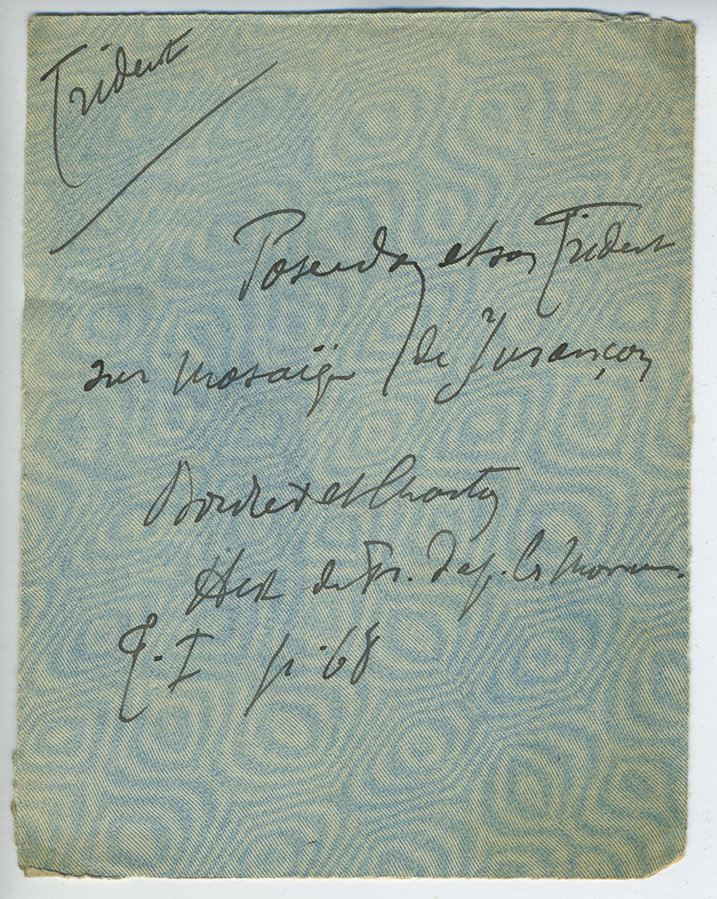 Trident
Poseidon et son Trident
sur mosaïque de Jurançon
Bordier et Charton
Hist de Fr. d'ap. les Monum.
T. I p. 68